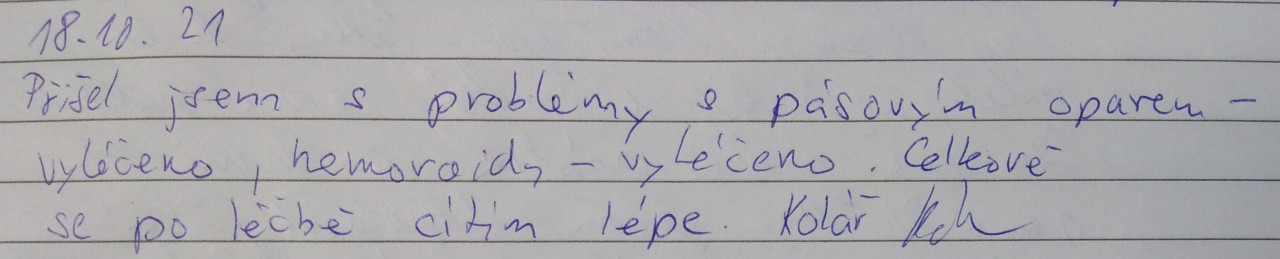 18.10. 21
Přišel jsem s problémy s pásovým oparem -
vyléčeno, hemoroidy - vyléčeno. Celkově
se po léčbě cítím lépe. Kolář